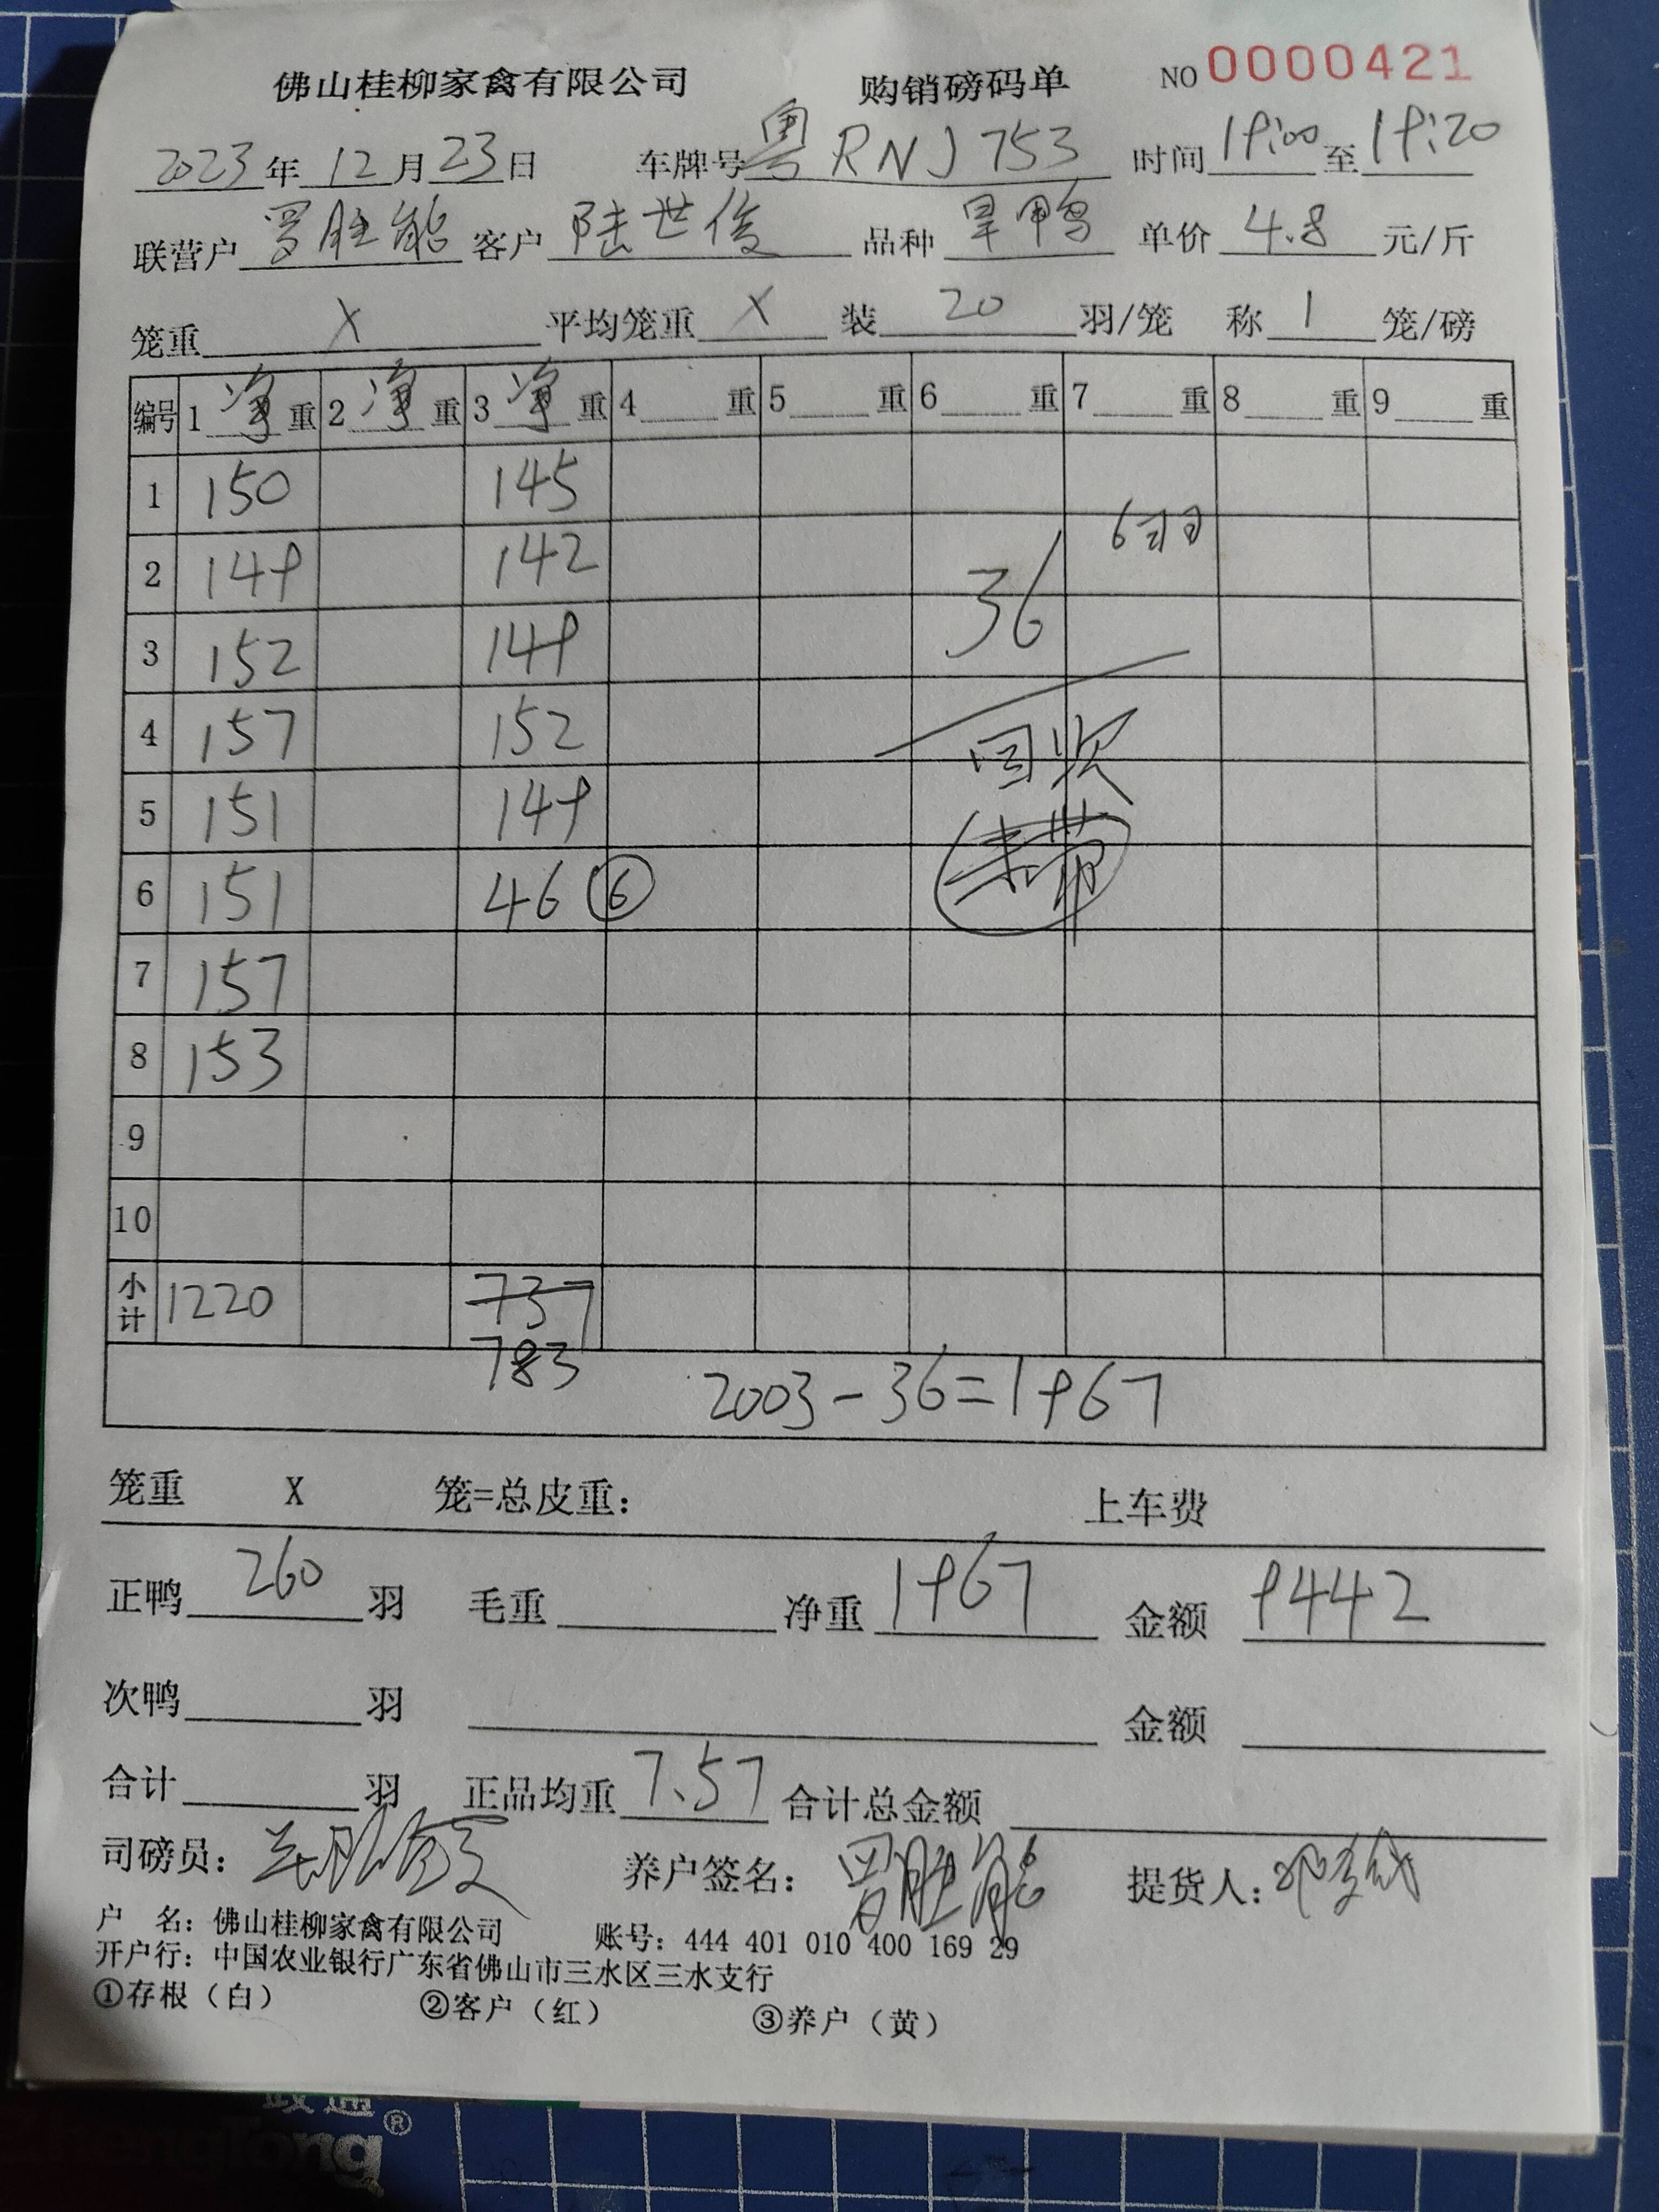 佛山桂柳家禽有限公司 购销磅码单 NO 0000421
2023年12月23日 车牌号粤RNJ753 时间19:00至19:20
联营户罗胜能 客户陆世俊 品种旱鸭 单价4.8元/斤
笼重X 平均笼重X 装20羽/笼 称1笼/磅
编号 1净重 2净重 3净重 4重 5重 6重 7重 8重 9重
1 150 145
6羽
2 149 142
36
3 152 149
4 157 152
回收
5 151 149
6 151 46 ⑥
7 157
8 153
9
10
小计 1220 737
783
2003-36=1967
笼重 X 笼=总皮重: 上车费
正鸭260羽 毛重 净重1967 金额9442
次鸭 羽 金额
合计 羽 正品均重7.57 合计总金额
司磅员: 养户签名: 罗胜能 提货人:
户 名: 佛山桂柳家禽有限公司 账号: 444 401 010 400 169 29
开户行: 中国农业银行广东省佛山市三水区三水支行
①存根(白) ②客户(红) ③养户(黄)